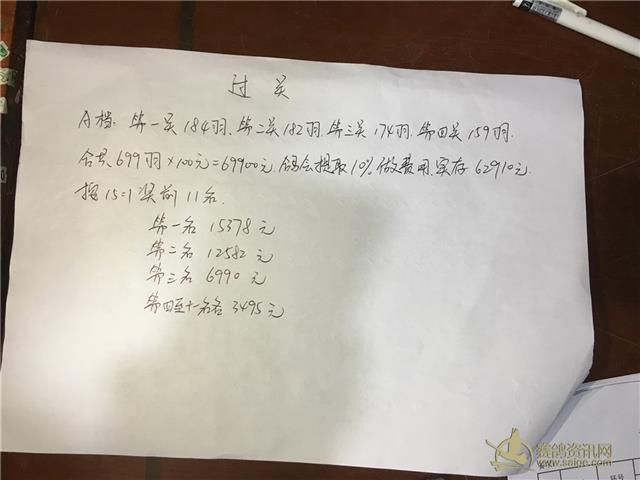 过关
A档: 第一关184羽、第二关182羽、第三关174羽、第四关159羽.
合共699羽×100元=69900元.鸽会提取10%做费用.实存62910元.
按15=1奖前11名.
第一名 15378元
第二名 12582元
第三名 6990元
第四至十一名各3495元
赛鸽资讯网
www.saige.com
环号